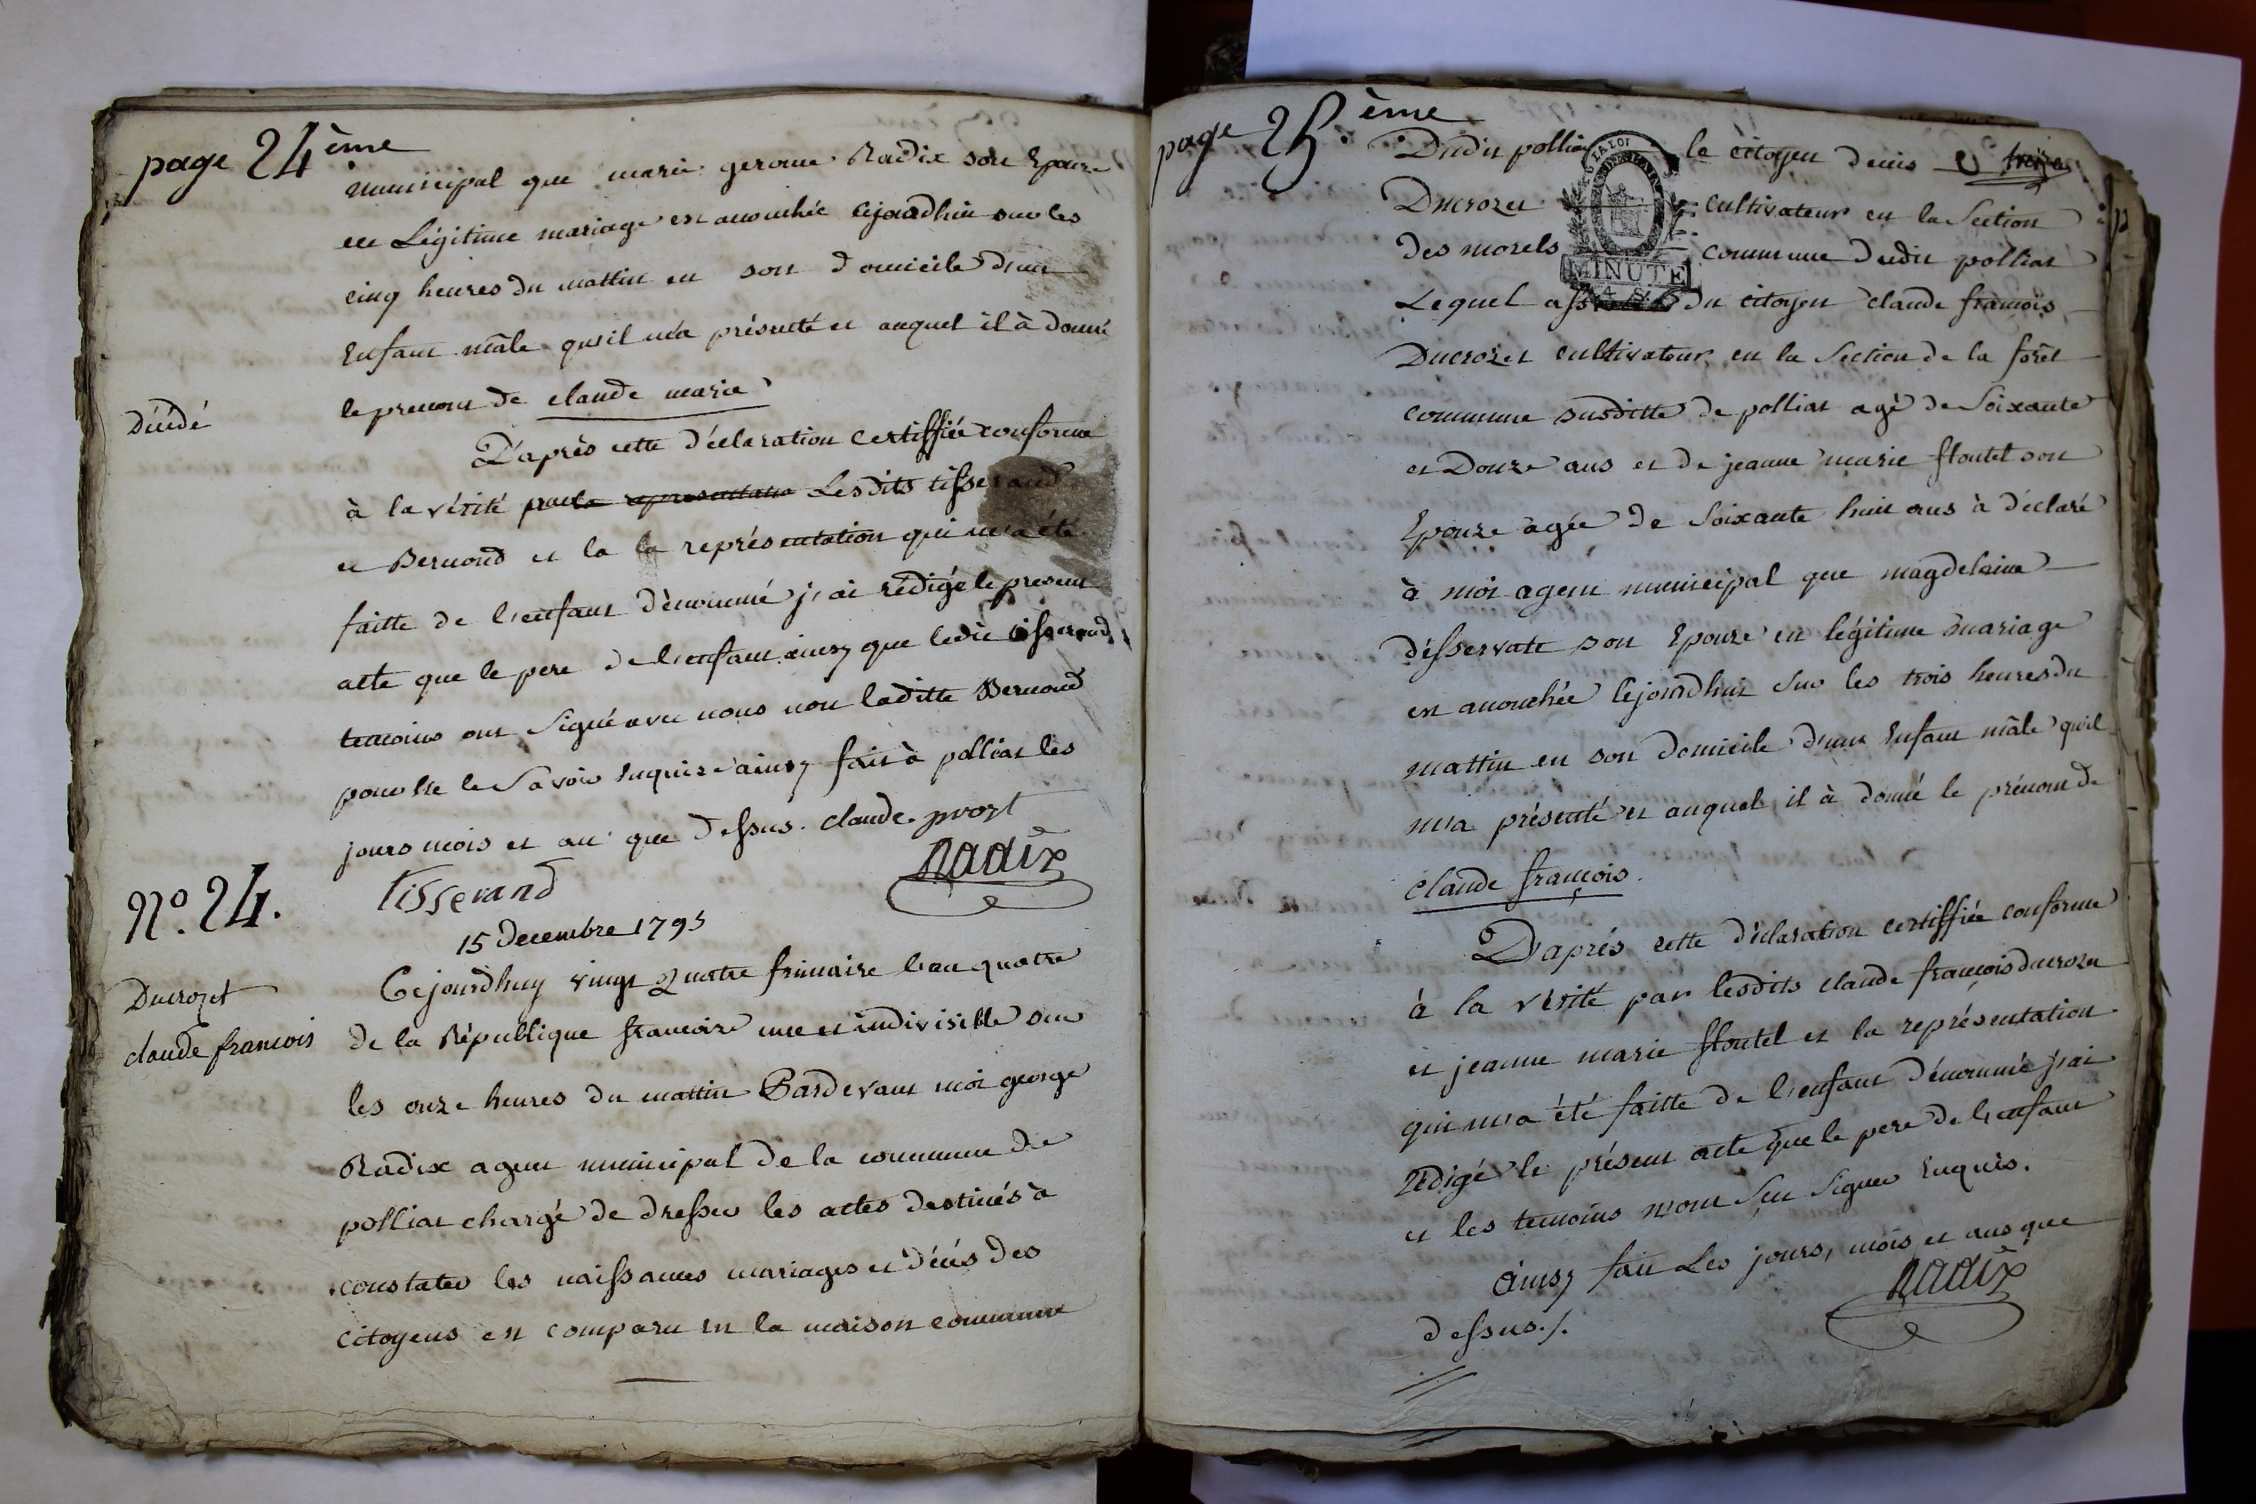 page 24ème
municipal que marie gerome Radix son Epouze
en Légitime mariage est accouchée cejourdhui sur les
cinq heures du mattin en son domicile d'un
Enfant mâle qu'il m'a présenté et auquel il à donné
le prenom de claude marie
Décédé
D'après cette déclaration certiffiée conforme
à la vérité par la representation Lesdits tisserand
et Bernond et la la représentation qui m'a été
faitte de l'enfant dénommé j'ai rédigé le present
acte que le pere de l'enfant ainsy que ledit tisserand
temoins ont Signé avec nous non laditte Bernond
pour ne le Savoir Enquize ainsy fait à polliat les
jours mois et an que dessus. claude prost
Tisserand Radix
No. 24.
15 decembre 1795
Ducrozet
claude francois
Cejourdhuy vingt Quatre frimaire l'an quatre
de la République francaize une et indivisible sur
les onze heures du mattin Pardevant moi george
Radix agent municipal de la commune de
polliat chargé de dresser les actes destinés à
constater les naissances mariages et décés des
citoyens est comparu en la maison commune
page 25.ème
Dudit polliat le citoyen denis
Ducrozet cultivateur en la Section
des morels commune dudit polliat
LA LOI
MINUTE
4 S.
Lequel assisté du citoyen claude francois
Ducrozet cultivateur en la Section de la forêt
commune susditte de polliat agé de Soixante
et Douze ans et de jeanne marie floutet son
Epouze agée de Soixante huit ans à déclaré
à moi agent municipal que magdelaine
desservate son Epouze en légitime mariage
est accouchée Cejourdhui Sur les trois heures du
mattin en son domicile d'un Enfant mâle qu'il
m'a présenté et auquel il à donné le prénom de
claude françois.
D'aprés cette déclaration certiffiée conforme
à la vérité par lesdits claude françois ducrozet
et jeanne marie floutet et la représentation
qui m'a été faitte de l'enfant dénommé j'ai
rédigé le présent acte que le pere de l'enfant
et les temoins n'ont Sçu Signer Enquis.
ainsy fait Les jours, mois et ans que
dessus./. Radix